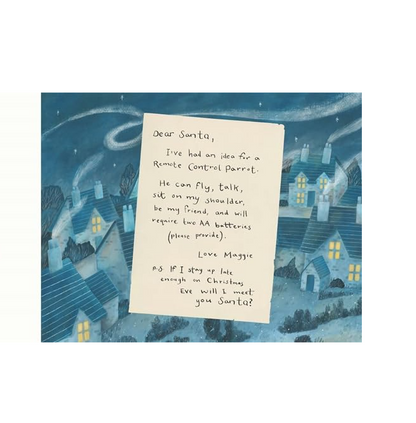 Dear Santa,
I've had an idea for a
Remote Control Parrot.
He can fly, talk,
sit on my shoulder,
be my friend, and will
require two AA batteries
(please provide).
Love Maggie
P.S. If I stay up late
enough on Christmas
Eve will I meet
you Santa?